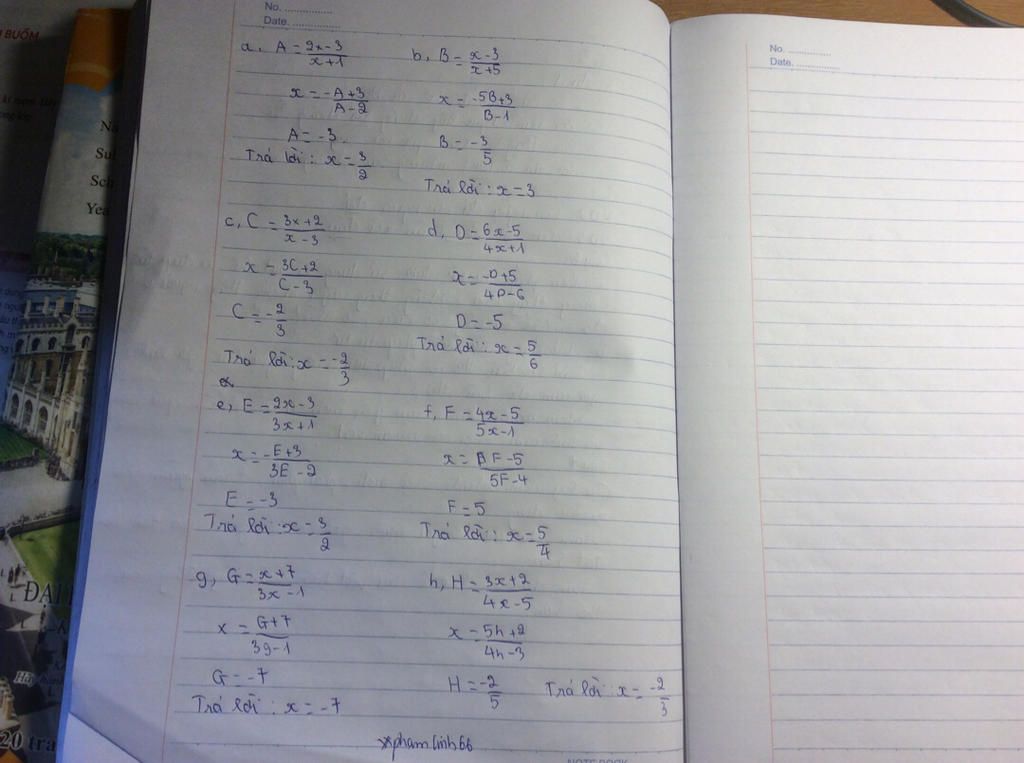 No. ...............
Date. ..............
a, A = 2x-3/x+1
x = -A+3/A-2
A = -3
Trả lời : x = 3/2
b, B = x-3/x+5
x = -5B+3/B-1
B = -3/5
Trả lời : x = 3
c, C = 3x+2/x-3
x = 3C+2/C-3
C = -2/3
Trả lời : x = -2/3
d, D = 6x-5/4x+1
x = -D+5/4D-6
D = -5
Trả lời : x = 5/6
e, E = 2x-3/3x+1
x = -E+3/3E-2
E = -3
Trả lời : x = 3/2
f, F = 4x-5/5x-1
x = F-5/5F-4
F = 5
Trả lời : x = 5/4
g, G = x+7/3x-1
x = G+7/3g-1
G = -7
Trả lời : x = -7
h, H = 3x+2/4x-5
x = 5h+2/4h-3
H = -2/5
Trả lời : x = -2/3
xxphamlinh66
No. ...............
Date. ..............
BUỒM
Na
Sul
Sch
Yea
ĐẠI
20 tra